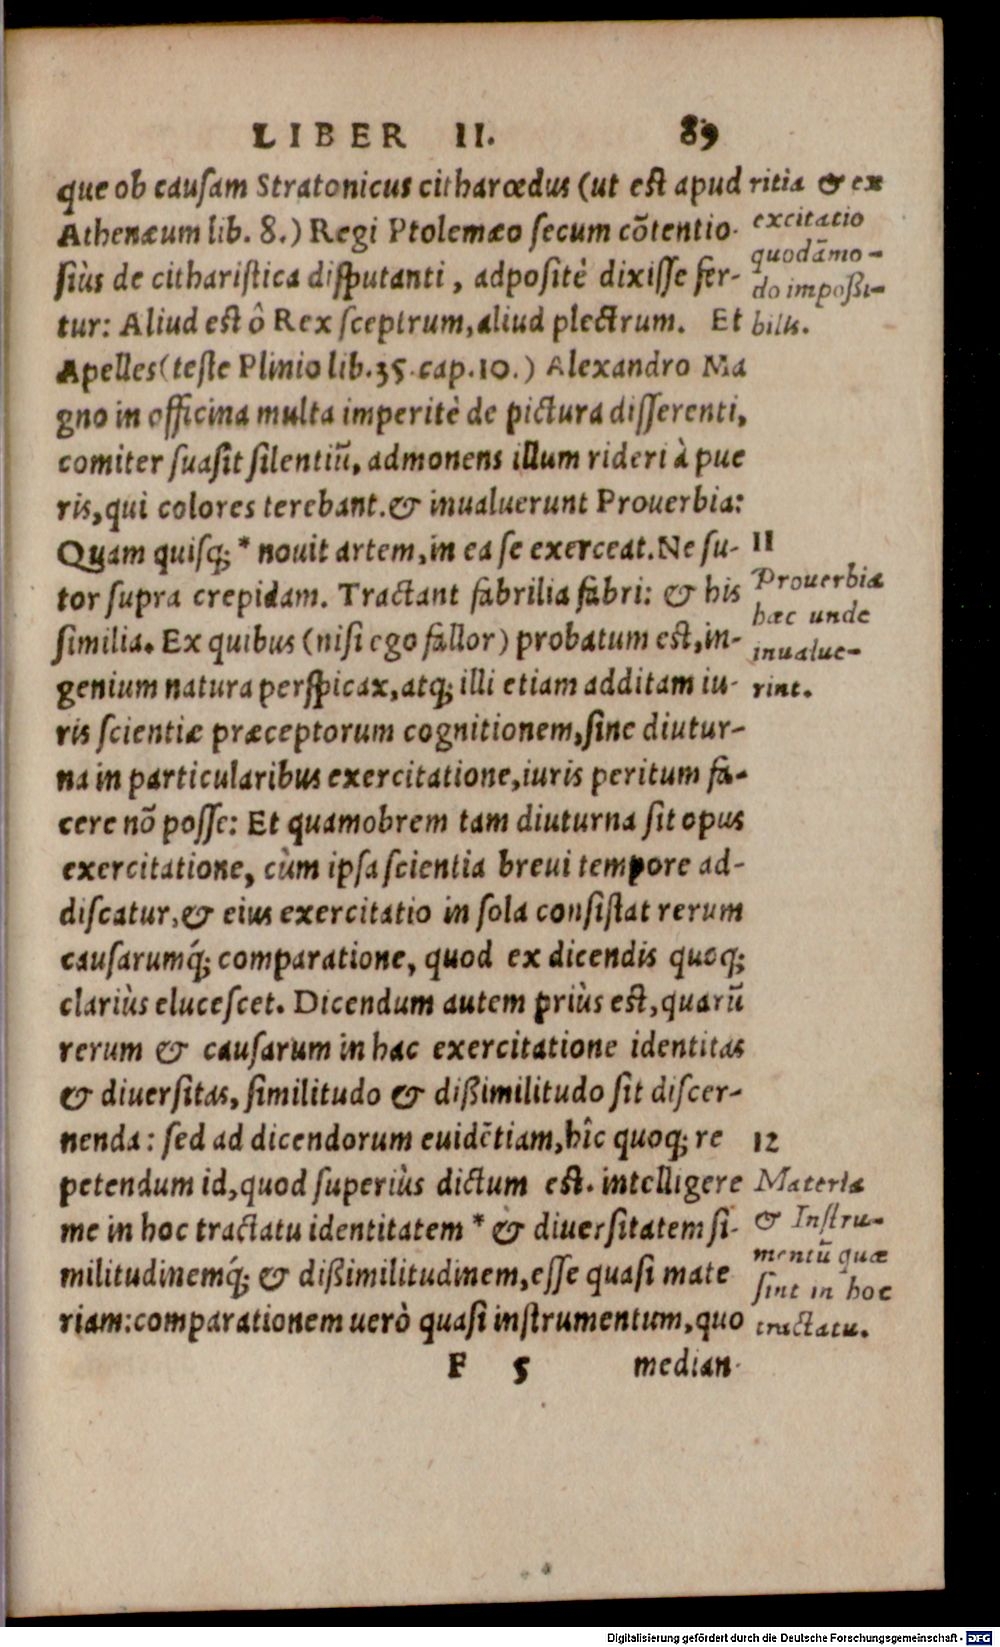 LIBER II. 89
que ob causam Stratonicus citharœdus (ut est apud
Athenæum lib. 8.) Regi Ptolemæo secum cõtentio-
siùs de citharistica disputanti, adpositè dixisse fer-
tur: Aliud est ô Rex sceptrum, aliud plectrum. Et
Apelles (teste Plinio lib. 35. cap. 10.) Alexandro Ma
gno in officina multa imperitè de pictura disserenti,
comiter suasit silentiũ, admonens illum rideri à pue
ris, qui colores terebant. & inualuerunt Prouerbia:
Quam quisq; * nouit artem, in ea se exerceat. Ne su-
tor supra crepidam. Tractant fabrilia fabri: & his
similia. Ex quibus (nisi ego fallor) probatum est, in-
genium natura perspicax, atq; illi etiam additam iu-
ris scientiæ præceptorum cognitionem, sine diutur-
na in particularibus exercitatione, iuris peritum fa-
cere nõ posse: Et quamobrem tam diuturna sit opus
exercitatione, cùm ipsa scientia breui tempore ad-
discatur, & eius exercitatio in sola consistat rerum
causarumq́; comparatione, quod ex dicendis quoq;
clariùs elucescet. Dicendum autem priùs est, quarũ
rerum & causarum in hac exercitatione identitas
& diuersitas, similitudo & dißimilitudo sit discer-
nenda: sed ad dicendorum euidẽtiam, hîc quoq; re
petendum id, quod superiùs dictum est. intelligere
me in hoc tractatu identitatem * & diuersitatem si-
militudinemq́; & dißimilitudinem, esse quasi mate
riam: comparationem uerò quasi instrumentum, quo
F 5 median-
ritia & ex
excitatio
quodãmo-
do impoßi-
bilis.
11
Prouerbia
hæc unde
inualue-
rint.
12
Materia
& Instru-
mentũ quæ
sint in hoc
tractatu.
Digitalisierung gefördert durch die Deutsche Forschungsgemeinschaft - DFG